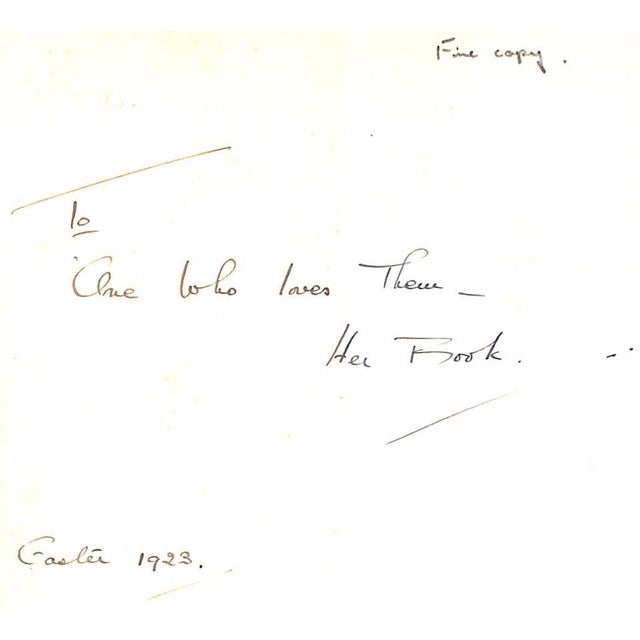 Fine copy.
To
One who loves Them –
Her Book.
Easter 1923.